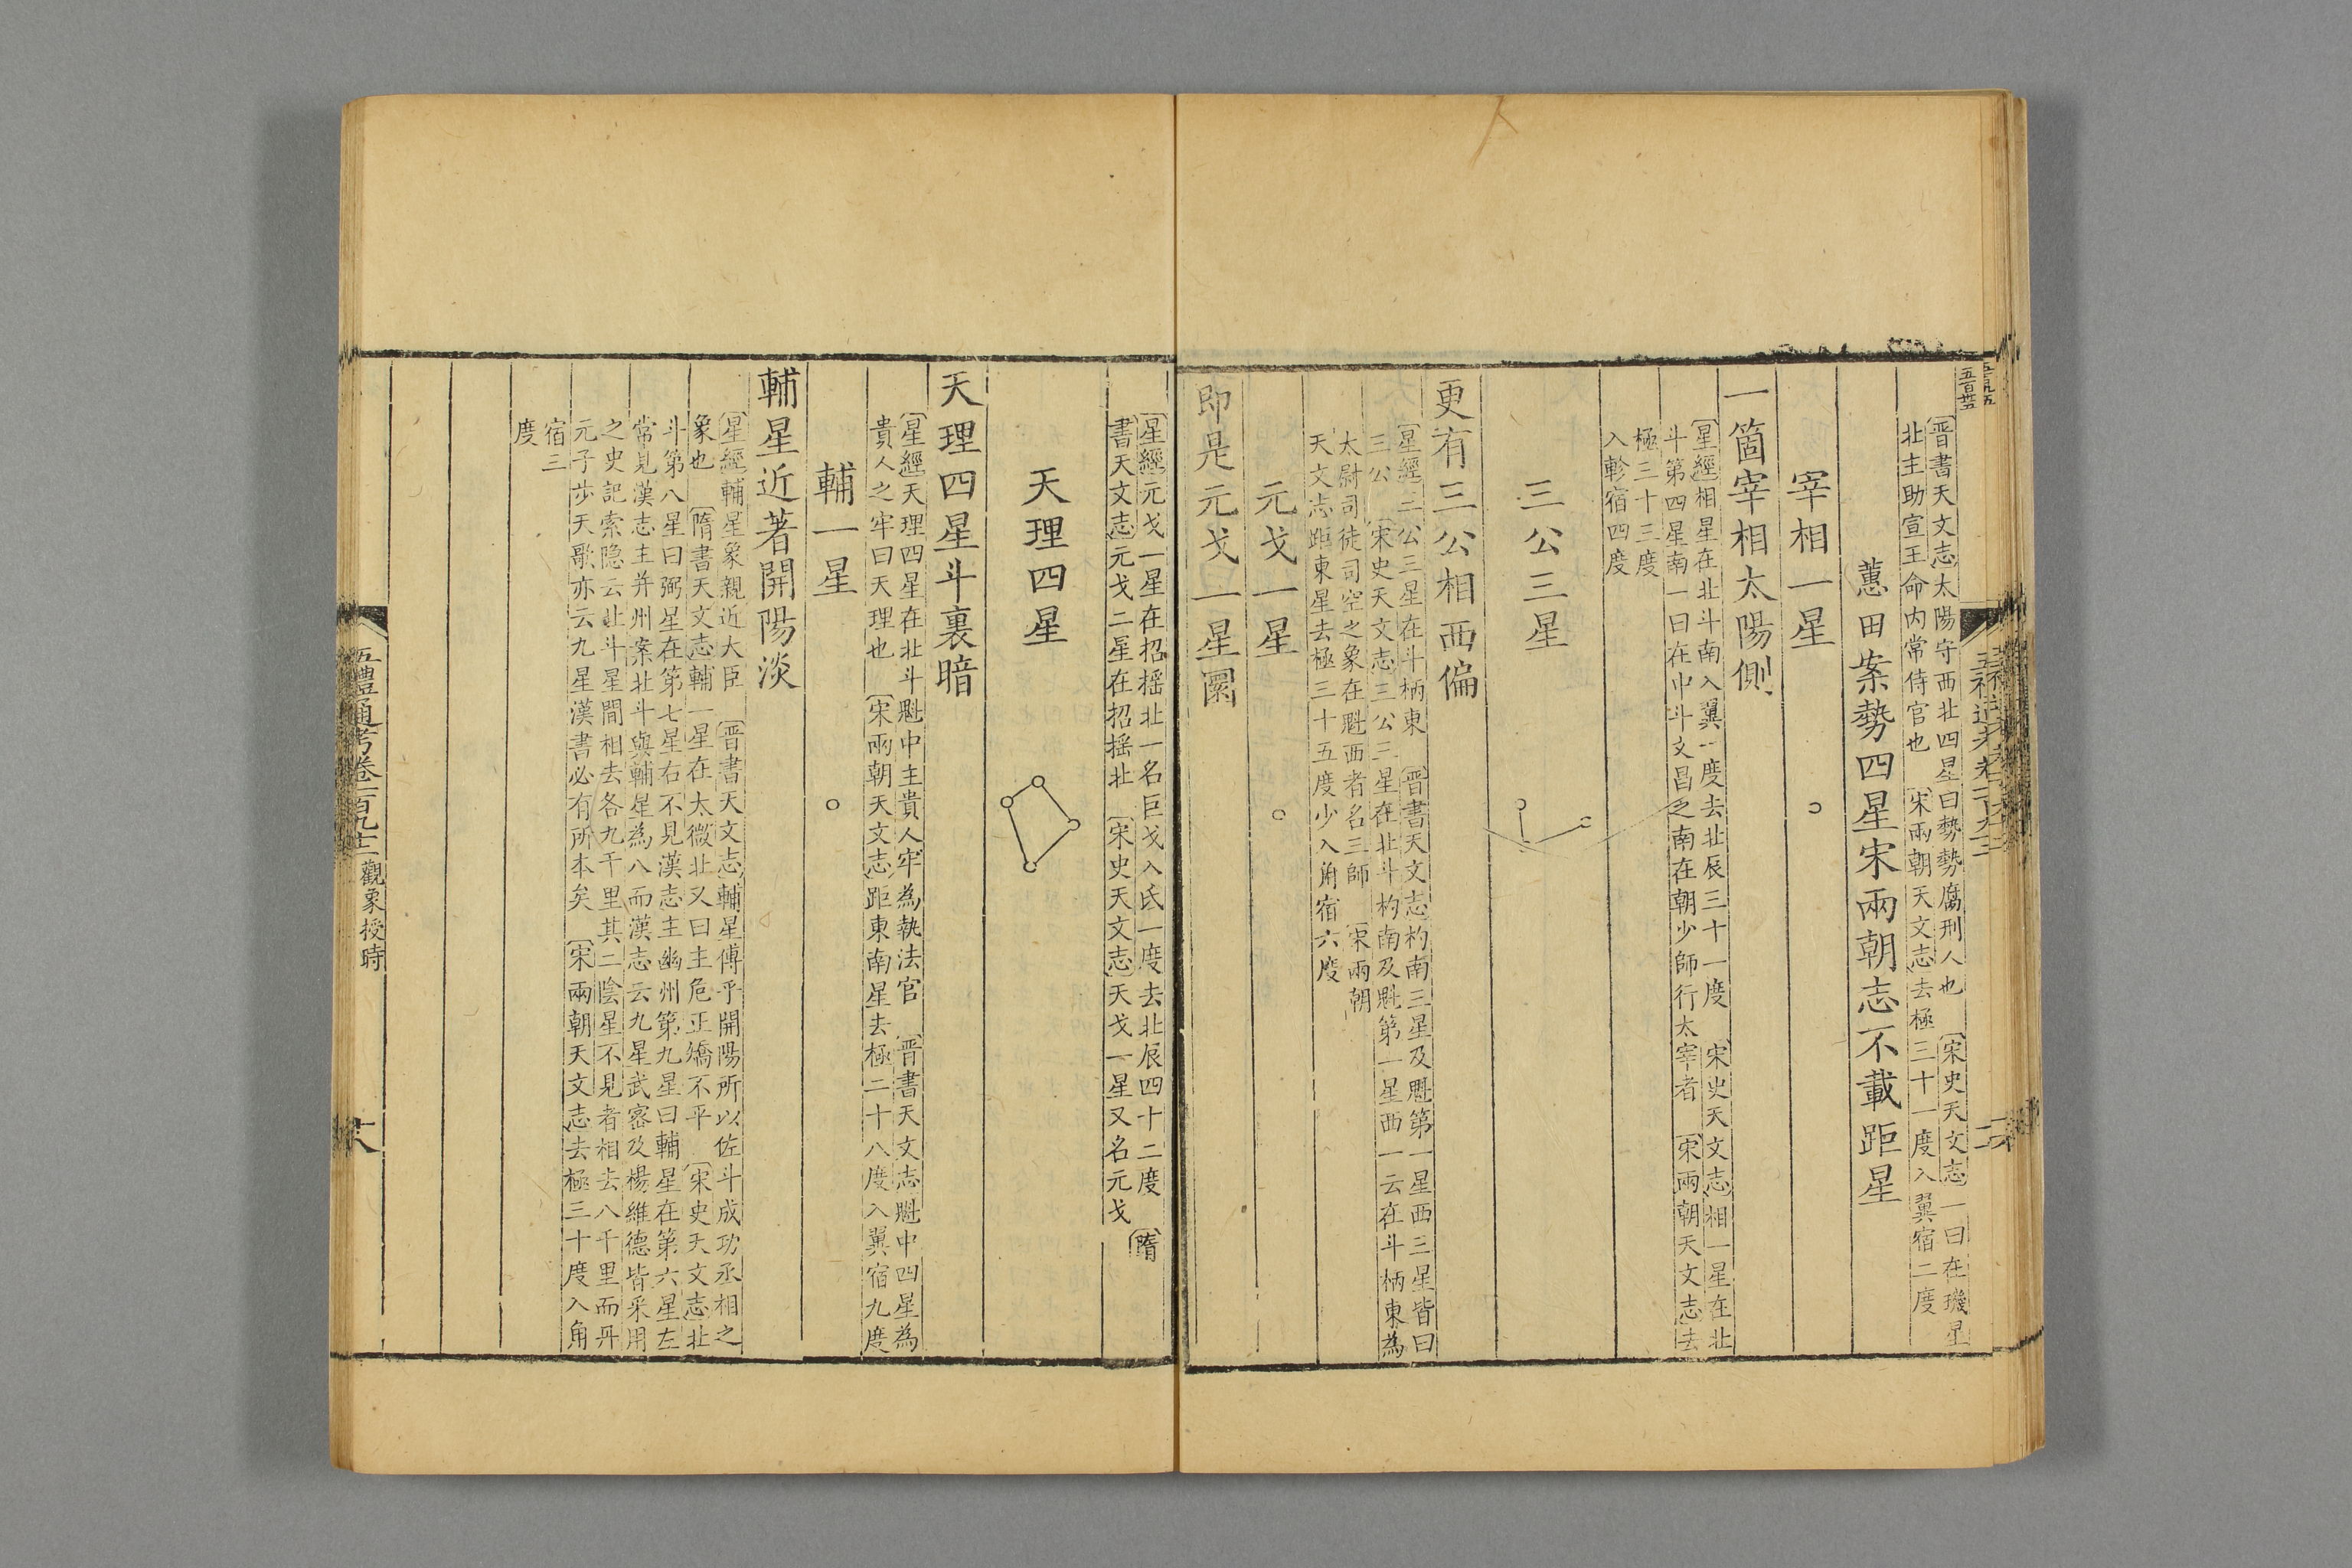 〔晋書天文志〕太陽守西北四星曰勢勢腐刑人也　〔宋史天文志〕一曰在璣星
北主助宣王命内常侍官也　〔宋兩朝天文志〕去極三十一度入翼宿二度
蕙田案勢四星宋兩朝志不載距星
宰相一星
一箇宰相太陽側
〔星經〕相星在北斗南入翼一度去北辰三十一度　〔宋史天文志〕相一星在北
斗第四星南一曰在中斗文昌之南在朝少師行太宰者　〔宋兩朝天文志〕去
極三十三度
入軫宿四度
三公三星
更有三公相西偏
〔星經〕三公三星在斗柄東　〔晋書天文志〕杓南三星及魁第一星西三星皆曰
三公　〔宋史天文志〕三公三星在北斗杓南及魁第一星西一云在斗柄東為
太尉司徒司空之象在魁西者名三師　〔宋兩朝
天文志〕距東星去極三十五度少入角宿六度
元戈一星
即是元戈一星圜
〔星經〕元戈一星在招摇北一名巨戈入氐一度去北辰四十二度　〔隋
書天文志〕元戈二星在招摇北　〔宋史天文志〕天戈一星又名元戈
天理四星
天理四星斗裏暗
〔星經〕天理四星在北斗魁中主貴人牢為執法官　〔晋書天文志〕魁中四星為
貴人之牢曰天理也　〔宋兩朝天文志〕距東南星去極二十八度入翼宿九度
輔一星
輔星近著開陽淡
〔星經〕輔星象親近大臣　〔晋書天文志〕輔星傅乎開陽所以佐斗成功丞相之
象也　〔隋書天文志〕輔一星在太微北又曰主危正矯不平　〔宋史天文志〕北
斗第八星曰弼星在第七星右不見漢志主幽州第九星曰輔星在第六星左
常見漢志主并州案北斗與輔星為八而漢志云九星武密及楊維德皆采用
之史記索隐云北斗星間相去各九千里其二陰星不見者相去八千里而丹
元子步天歌亦云九星漢書必有所本矣　〔宋兩朝天文志〕去極三十度入角
宿三
度
五禮通考卷一百九十二　觀象授時